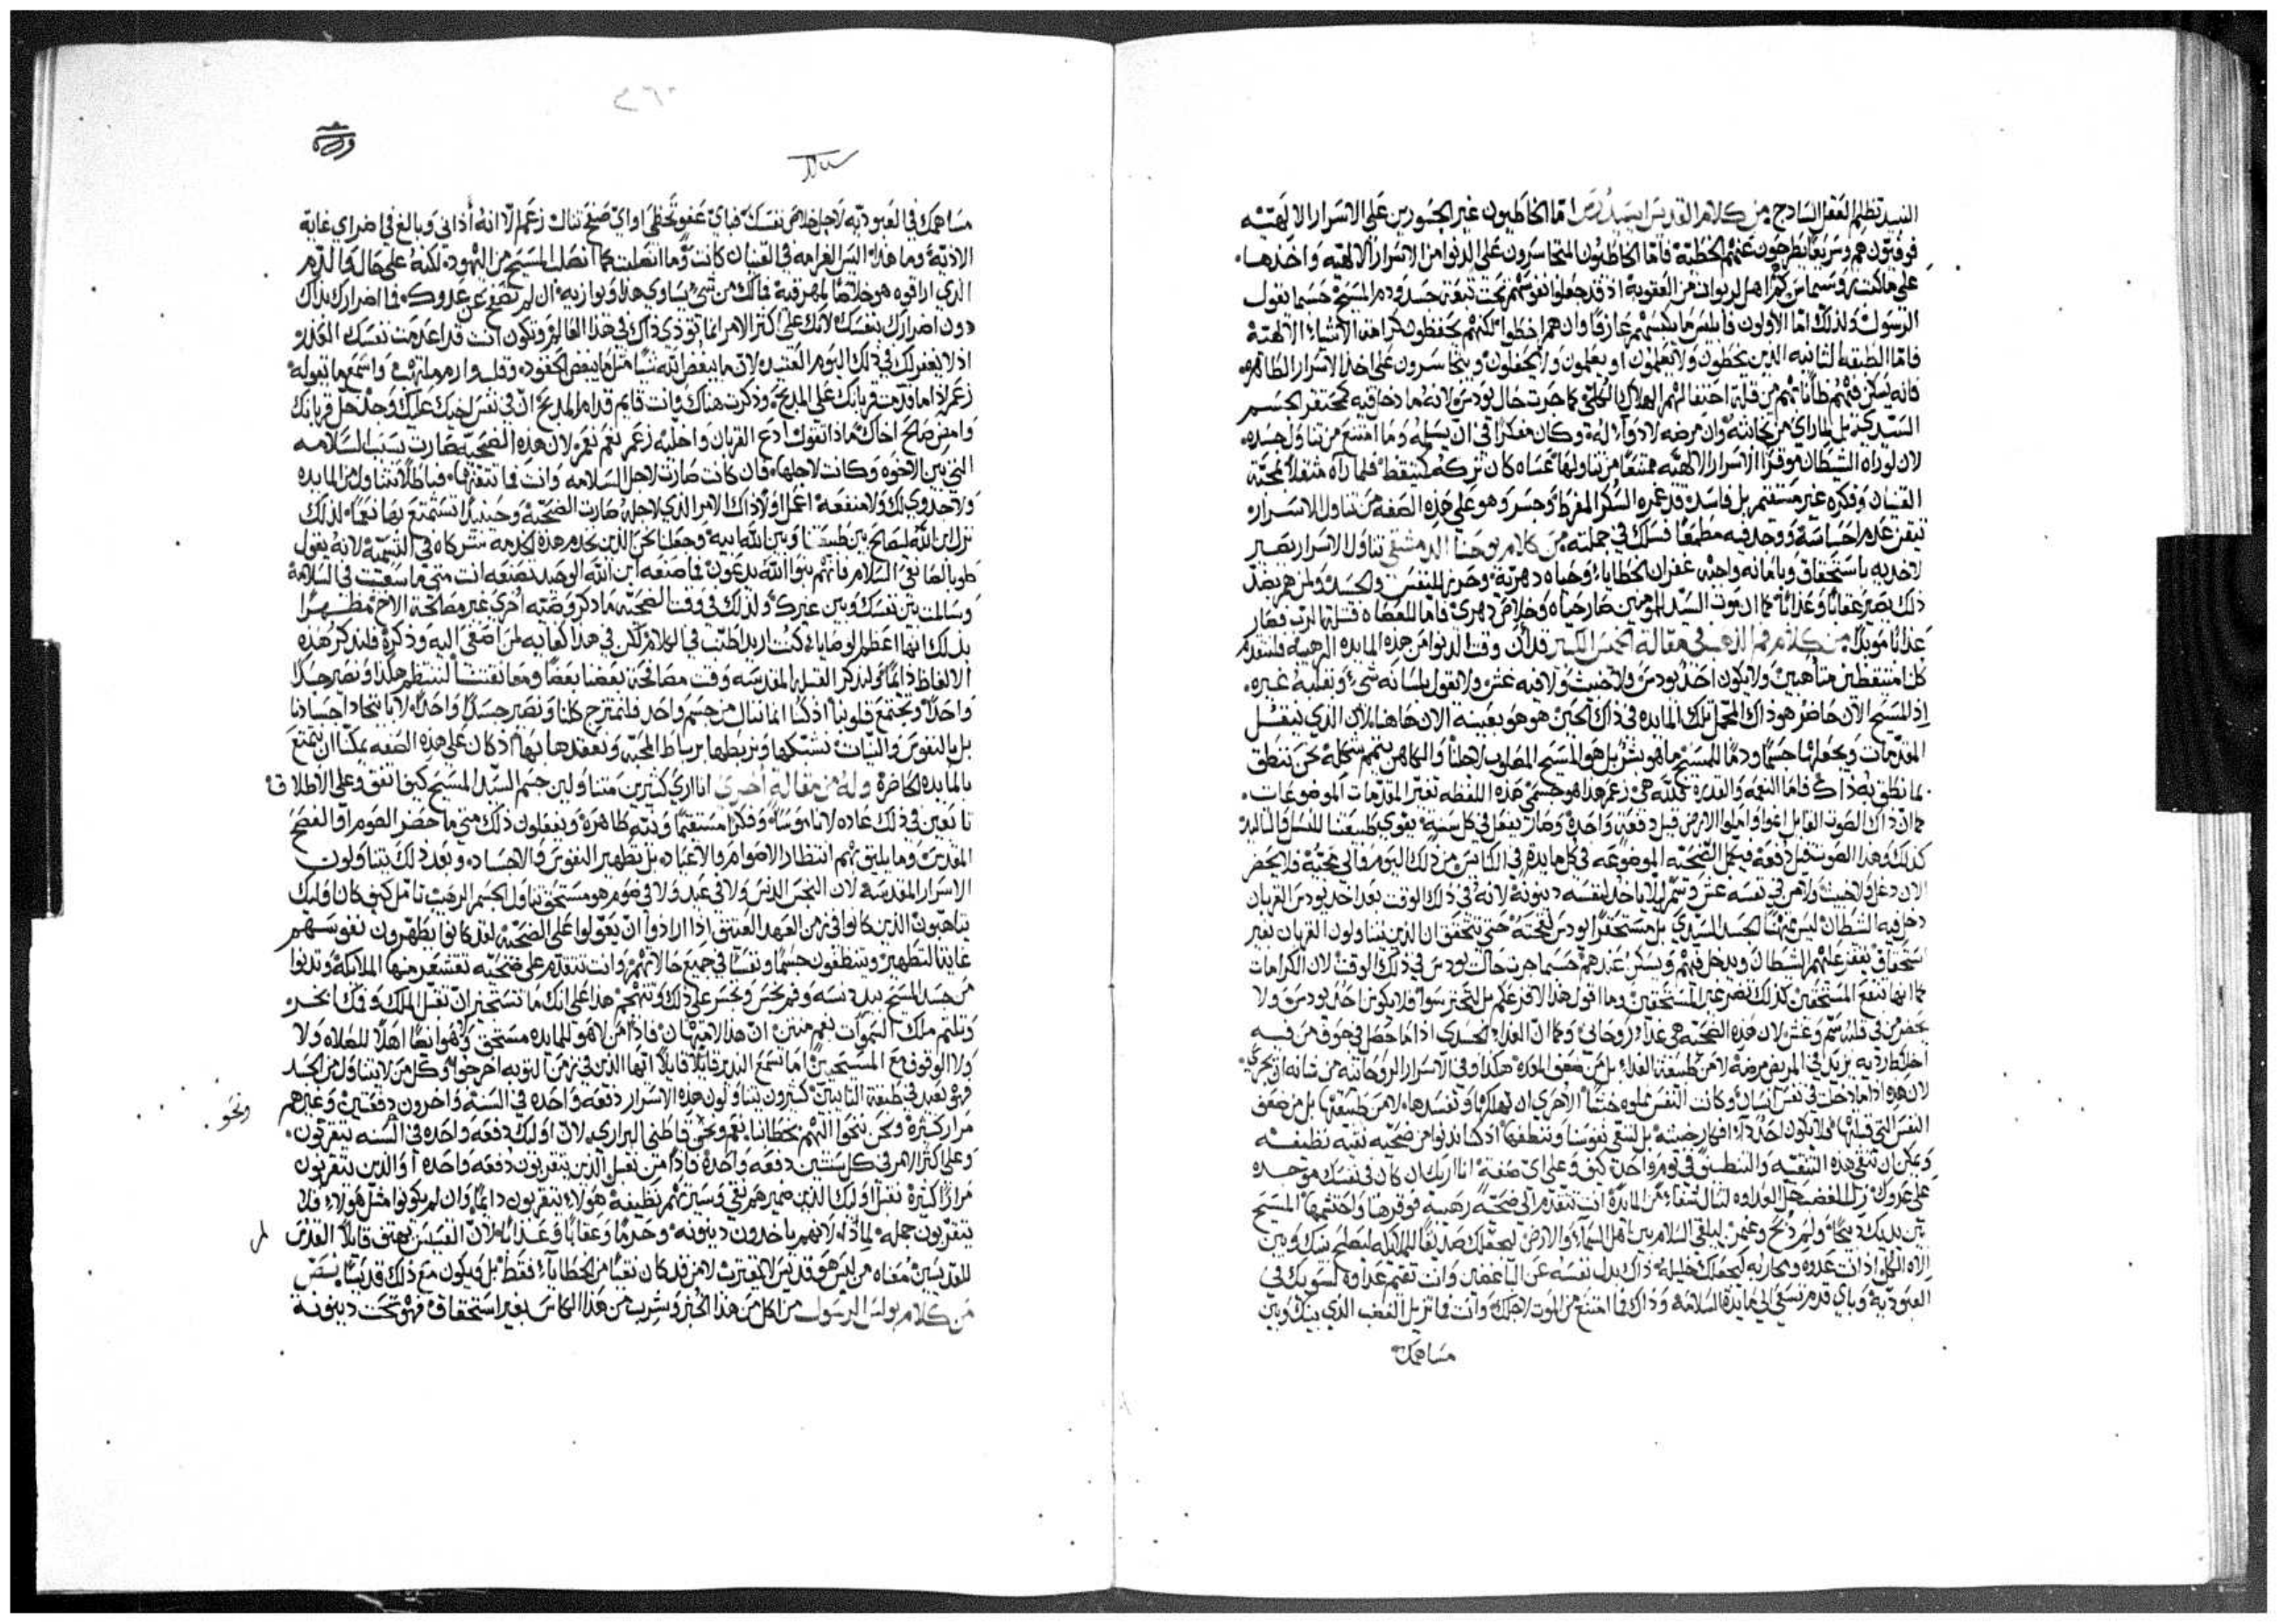 النبيذ تظلم العقل الساذج. من كلام القديس ايسيدرس اما الخاطيون غير الجسورين على الاسرار الالهية
فوقتون هم وسريعا يطرحون عنهم الخطية فاما الخاطيون المتجاسرون على الدنو من الاسرار الالهيه واخذها
اهل لربوات من العقوبة اذ قد جعلوا نفوسهم تحت تبعة جسد ودم المسيح حسبما يقول
الرسول ولذلك اما الاولون وان هم اخطوا لكنهم يحفظون كرامة الاشياء الالهية
فاما الطبقه الثانيه الذين يخطون ولا يعلمون او يعلمون ولا يحفلون ويتجاسرون على اخذ الاسرار الطاهره
فانه يسكن فيهم من قلة احتفالهم الهلاك الكلي كما جرت حال يودس لانه ما دخل فيه محتقر الجسم
السيدي بل لما راي من خيانته وان مرضه لا دواء له وكان مفكرا في ان يسلمه وما امتنع من تناول جسده
لان لو راه الشيطان موقرا الاسرار الالهيه ممتنعا من تناولها عساه كان تركه فلما رآه مثقلا بمحبة
القنيان وفكره غير مستقيم بل فاسد قد غمره السكر المفرط وجسر وهو على هذه الصفه من تناول الاسرار
تيقن عدم احساسه ووجد فيه مطمعا فسلك في جملته. من كلام يوحنا الدمشقي تناول الاسرار يصير
لاخذيه باستحقاق وبامانه واجبه غفران الخطايا وحياه دهرية وحرزا للنفس والجسد ولمن هم بضد
ذلك يصير عقابا وعذابا كما ان موت السيد للمومنين صار حياه وخلاص دهري فاما للعصاه قتلة الرب فصار
عذابا موبدا. من كلام فم الذهب في مقالة الخميس الكبير قد آن وقت الدنو من هذه المايده الرهيبه فلنتقدم
كلنا متيقظين متاهبين ولا يكون احد يودس ولا خبيث ولا فيه غش ولا يقول بلسانه شي وبقلبه غيره
اذ المسيح الآن حاضر هو ذاك المجمل تلك المايده في ذاك الحين هو هو بعينه الان هاهنا لان الذي ينقل
المقدمات ويجعلها جسما ودما للمسيح ما هو بشر بل هو المسيح المصلوب لاجلنا والكاهن يتمم شكله حين ينطق
بما نطق به ذاك فاما النعمه والقدرة لله هي زعم هذا هو جسمي هذه اللفظه تغير المقدمات الموضوعات
كما ان ذاك الصوت القايل انموا واملوا الارض قيل دفعة واحدة وصار بفعل في كل سنة يقوي طبيعتنا للنسل والتاليد
كذلك وهذا الصوت قيل دفعة فيكمل الضحيه الموضوعه في كل مايدة في الكنايس من ذلك اليوم والى مجيه فلا يحضر
الان دغل ولا خبيث ولا من في نفسه غش وشر ليلا ياخذ لنفسه دينونة لانه في ذاك الوقت بعد اخذ يودس القربان
دخل فيه الشيطان ليس مهينا الجسد السيدي بل مستحقرا يودس لقحته حتي يتحقق ان الذين يتناولون القربان بغير
استحقاق يقفز عليهم الشيطان ويدخل فيهم ويسكن عندهم حسبما جرت حال يودس في ذلك الوقت لان الكرامات
كما انها تنفع المستحقين كذلك تضر غير المستحقين وما اقول هذا لافزعكم بل لتحترسوا فلا يكون احد يودس ولا
يحضر من في قلبه سم وغش لان هذه الضحيه هي غذاء روحاني وكما ان الغذاء الجسدي اذا ما حصل في جوف من فيه
اخلاط رديه يزيد في المريض مرضه لا من طبيعة الغذاء بل من ضعف المعده هكذا وفي الاسرار الروحانية من شانه ان يجري
لان هذه اذا ما دخلت في نفس انسان وكانت النفس مملوه خبثا الاحري ان تهلكها وتفسدها لا من طبيعتها بل من ضعف
النفس التي قبلتها فلا يكون احد ذا افكار خبيثه بل لننقي نفوسنا وننظفها اذ كنا ندنو من ضحيه نقيه نظيفه
ويمكن ان ننقي هذه التنقيه والتنظيف في يوم واحد كيف وعلى اي صفة انا اريك ان كان في نفسك موجده
على عدوك زل الغضب حل العداوه لتنال شفاء من المايدة انت تتقدم الى ضحية رهيبه فوقرها واحتشمها المسيح
بين يديك ذبيحا ولم ذبح وعمن ليلقي السلام بين اهل السماء والارض ليجعلك صديقا للملايكه ليصلح بينك وبين
الاه الكل اذ انت عدوه ومحاربه ليجعلك خليله ذاك بذل نفسه عن الباغضين وانت تقيم عداوة لشريكك في
العبودية وباي قدم تسعى الى مايدة السلامة وذاك فما امتنع من الموت لاجلك وانت فما تزيل الغضب الذي بينك وبين
مساهمك
ورقه
مساهمك في العبوديه لاجل خلاص نفسك فباي عفو تحظى او اي صفح تنال زعم الا انه أذاني وبالغ في اضراي غاية
الاذية وما هذا اليس لغرامه في القنيان كانت وما اتصلت كما اتصل المسيح من اليهود لكنه على حال والدم
الذي اراقوه هو خلاصا لمهرقيه فما لك من شي يساوي هذا ويوازيه ان لم تصفح عن عدوك فما اضرارك بذاك
دون اضرارك نفسك لانك على اكثر الامر انما توذي ذاك في هذا العالم وتكون انت قد اعدمت نفسك العذر
اذ لا يغفر لك في ذلك اليوم العتيد لان ما يبغض الله شيا مثلما يبغض الحقود واسمع ما تقوله
زعم اذا ما قدمت قربانك على المذبح وذكرت هناك وانت قايم قدام المذبح ان في نفس اخيك عليك وجد حل قربانك
وامض صالح اخاك ماذا تقول أدع القربان واخليه زعم نعم نعم لان هذه الضحيه صارت بسبب السلامه
التي بين الاخوه وكانت لاجلها فان كانت صارت لاجل السلامه وانت فما تقتنيها فباطلا تتناول من المايده
ولا جدوي لك ولا منفعة اعمل اولا ذاك الامر الذي لاجله صارت الضحيه وحينيذ تستمتع بها نعما لذلك
نزل ابن الله ليصالح بين طبيعتنا وبين الله ابيه وجعلنا نحن الذين نخدم هذه الخدمة شركاه في التسمية لانه يقول
طوبا لصانعي السلام فانهم بنوا الله يدعون فما صنعه ابن الله الوحيد تصنعه انت متي ما سعيت في السلامة
وسالمت بين نفسك وبين غيرك ولذلك في وقت الضحيه ما ذكر وصيه أخرى غير مصالحة الاخ مظهرا
بذلك انها اعظم الوصايا كنت اريد اطنب في الكلام لكن في هذا كفايه لمن اصغى اليه وذكره فلنذكر هذه
الالفاظ دايما ولنذكر القبلة المقدسه وقت مصافحة بعضنا بعضا ومعانقتنا لننتظم هكذا ونصير جسدا
واحدا وتجتمع قلوبنا اذ كنا انما ننال من جسم واحد فلنمتزج كلنا ونصير جسدا واحدا لا باتحاد اجسادنا
بل بالنفوس والنيات نشبكها ونربطها برباط المحبه ونعقدها بها اذ كان على هذه الصفه يمكنا ان نتمتع
بالمايده الحاضرة وله من مقالة اخرى انا اري كثيرين متناولين جسم السيد المسيح كيف اتفق وعلى الاطلاق
تابعين في ذلك عاده لا ناموسا وفكرا مستقيما ونيه طاهرة ويفعلون ذلك متي ما حضر الصوم او الفصح
المقدس وما يليق بهم انتظار الاصوام والاعياد بل تطهير النفوس والاجساد وبعد ذلك يتناولون
الاسرار المقدسه لان النجس الدنس ولا في عيد ولا في صوم هو مستحق تناول الجسم الرهيب تامل كيف كان اوليك
يتاهبون الذين كانوا في زمن العهد العتيق اذا ارادوا ان يقولوا على الضحيه لقد كانوا يطهرون نفوسهم
غاية التطهير ويتنظفون جسما ونفسا في جميع حالاتهم وانت تتقدم على ضحيه تقشعر منها الملايكة وتدنوا
من جسد المسيح بيد دنسه وفم نجس وتجسر على ذلك وتتهجم هذا على انك ما تستحير ان تقبل الملك وفمك ابخر
وتلثم ملك السموات بفم منتن ان هذا لامتهان فاذا من لا هو للمايده مستحق ولا هو ايضا اهلا للصلاه ولا
ولا الوقوف مع المستحقين اما تسمع النذير قايلا قايلا ايها الذين في زمن التوبه اخرجوا وكل من لا يتناول من الجسد
فهو يعد في طبقة التايبين كثيرون يتناولون هذه الاسرار دفعة واحده في السنة واخرون دفعتين وغيرهم
مرار كثيرة ونحن ننحوا اليهم بخطابنا نعم ونحو قاطني البراري لان اوليك دفعه واحده في السنه يتقربون
ونحو
وعلى اكثر الامر في كل سنتين دفعه واحدة فاذا من نقبل الذين يتقربون دفعه واحده او الذين يتقربون
مرارا كثيرة نقبل اوليك الذين ضميرهم نقي وسيرتهم نظيفة هولاء يتقربون دايما وان لم يكونوا مثل هولاء فلا
يتقربون جملة لماذا لانهم ياخذون دينونه وجرما وعقابا وعذابا لان القسيس يهتف قايلا القدس
للقديسين معناه من ليس هو قديس لا يقترب لا من قد كان نقيا من الخطايا فقط بل ويكون مع ذلك قديسا بنص
من كلام بولس الرسول من اكل من هذا الخبز وشرب من هذا الكاس بغير استحقاق فهو تحت دينونة